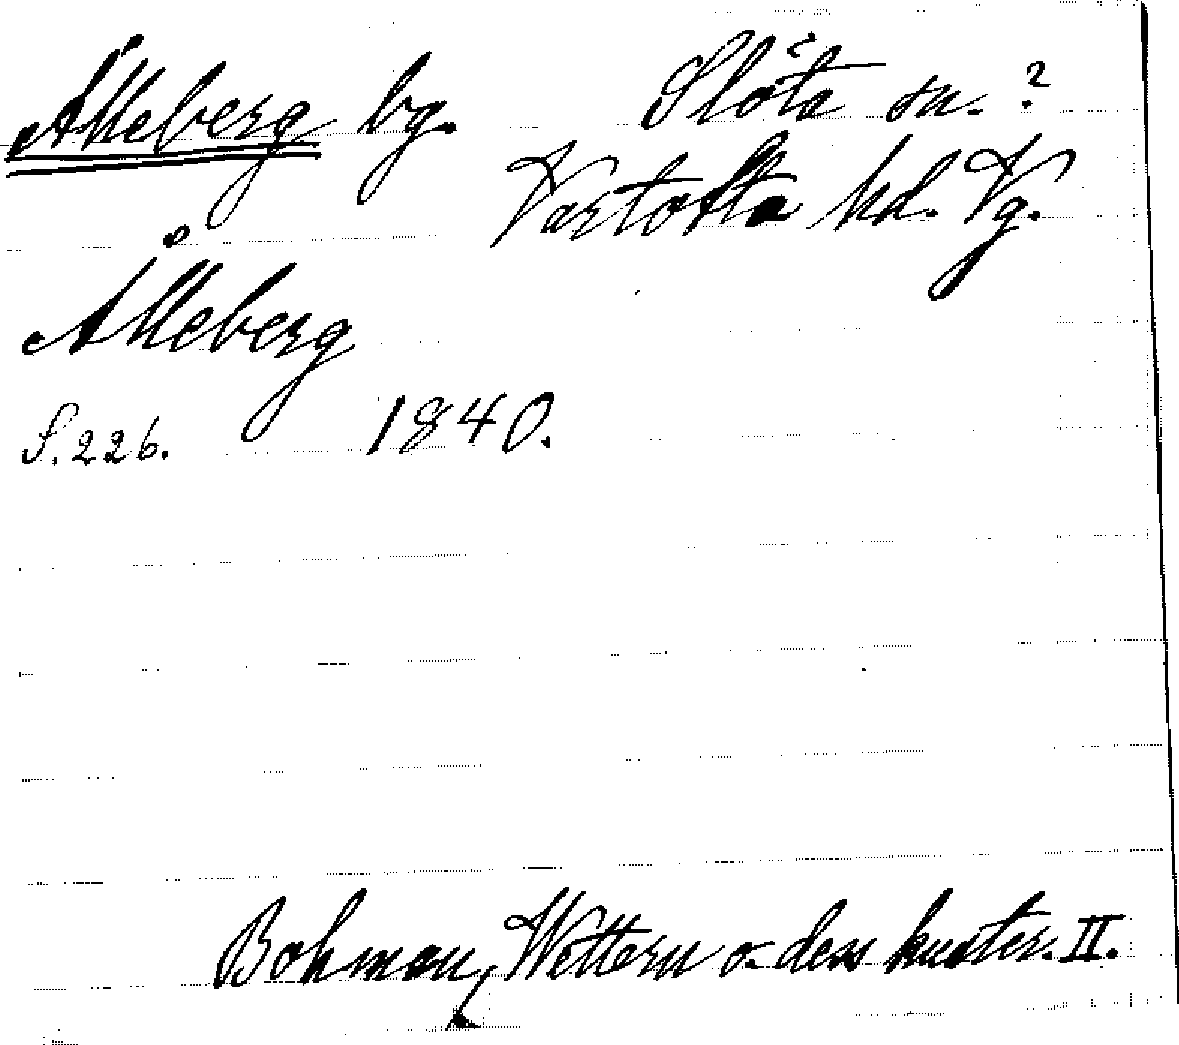 Ålleberg bg. Slöta sn. ?
Vartofta hd. Vg.
Ålleberg
S. 226. 1840.
Bohman, Wettern o. dess kuster. II.